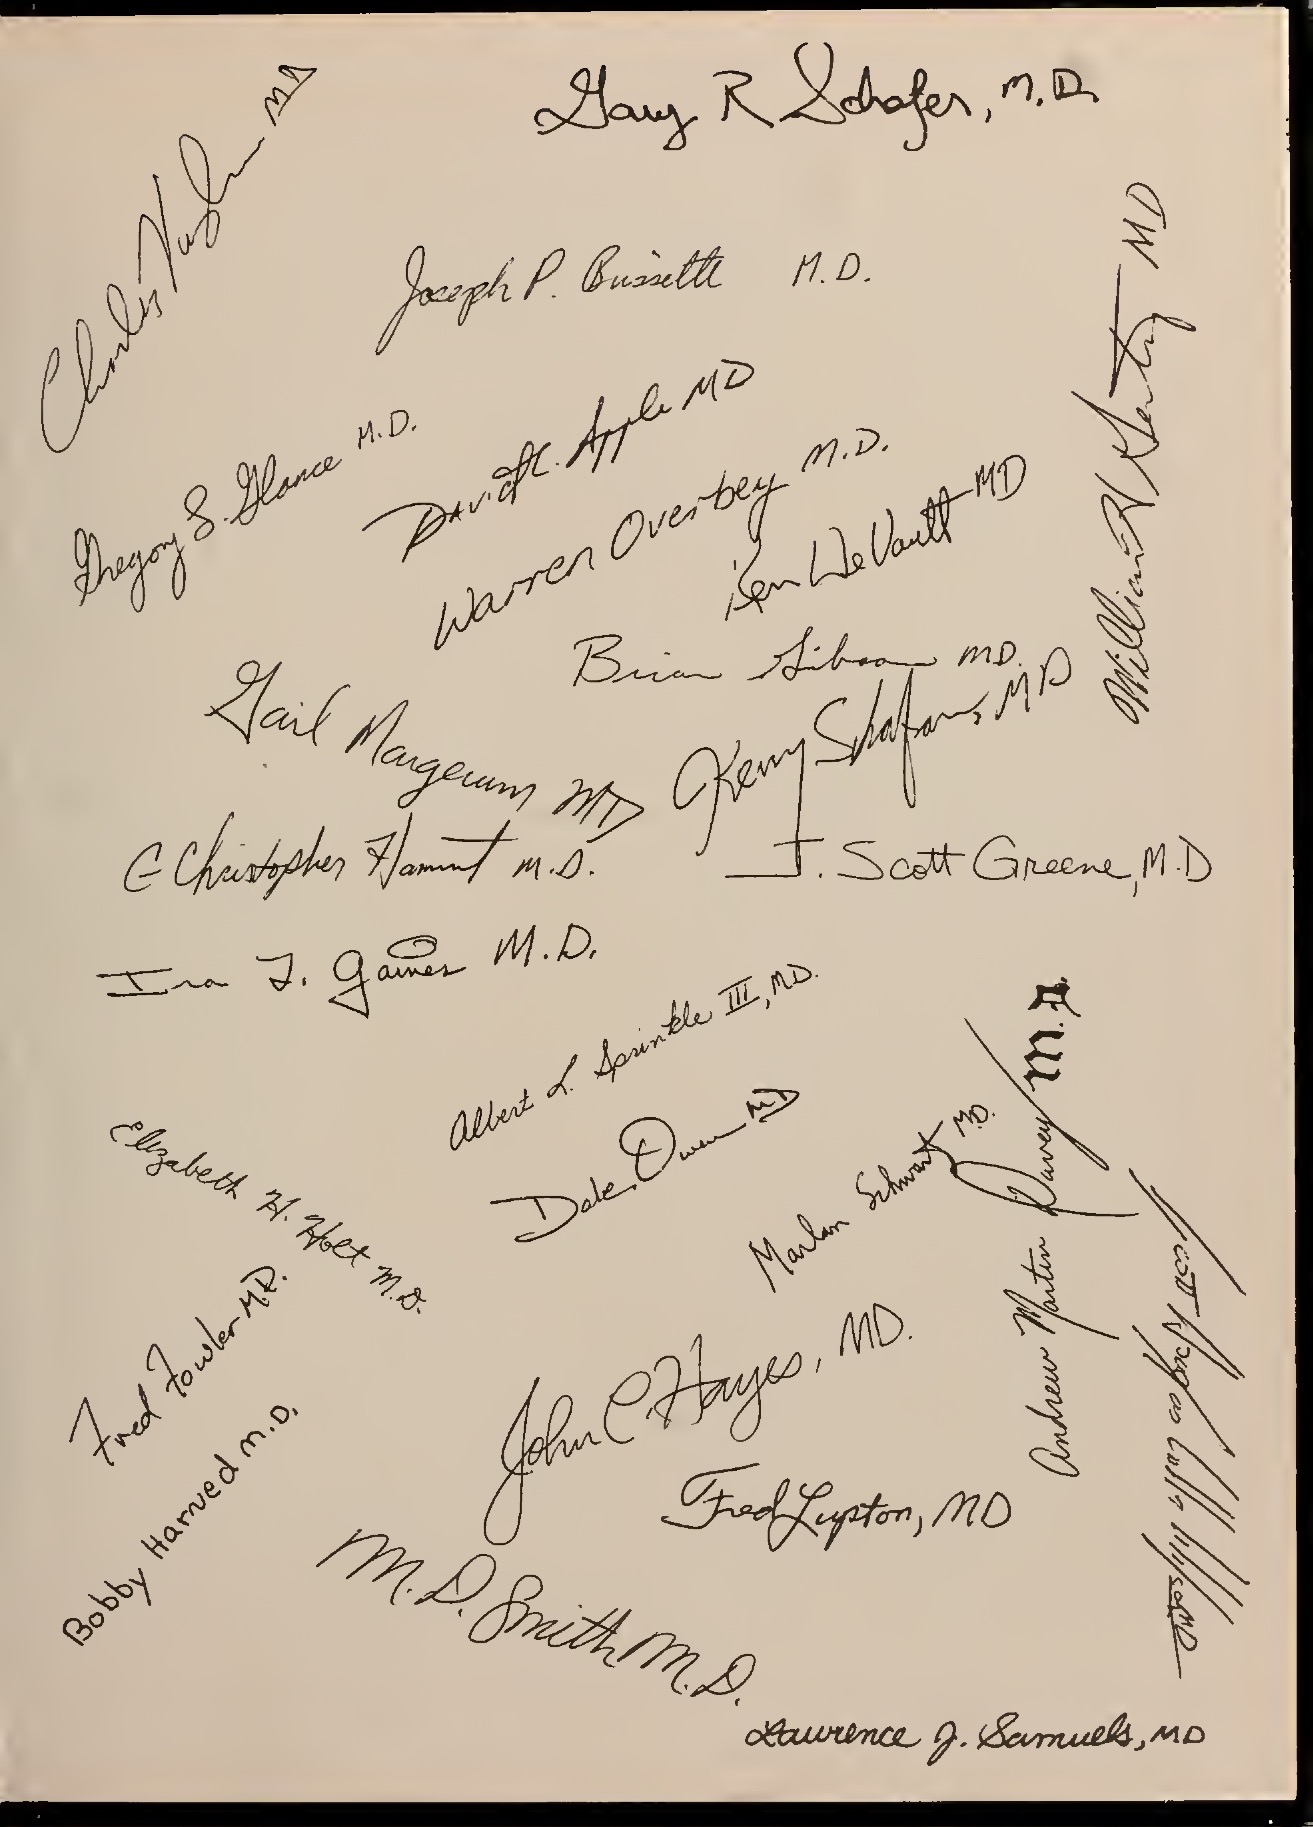 Gary R Schafer, M.D.
Charles Vaughn MD
Joseph P. Bissette M.D.
William H Gentry MD
Gregory S. Glance M.D.
David K. Apple MD
Warren Overbey M.D.
Ken DeVault MD
Brian Gibson MD.
Gail Margerum MD
Kerry Shafran, MD
C Christopher Hammet M.D.
J. Scott Greene, M.D
Ira F. Gaines M.D.
Albert L. Sprinkle III, M.D.
Elizabeth H. Holt M.D.
Dale Owen MD
Marlan Schwartz M.D.
Andrew Martin Davey M.D.
Fred Fowler M.D.
John C. Hayes, MD.
Bobby Harned M.D.
Fred Lupton, MD
M.D. Smith M.D.
Lawrence J. Samuels, MD